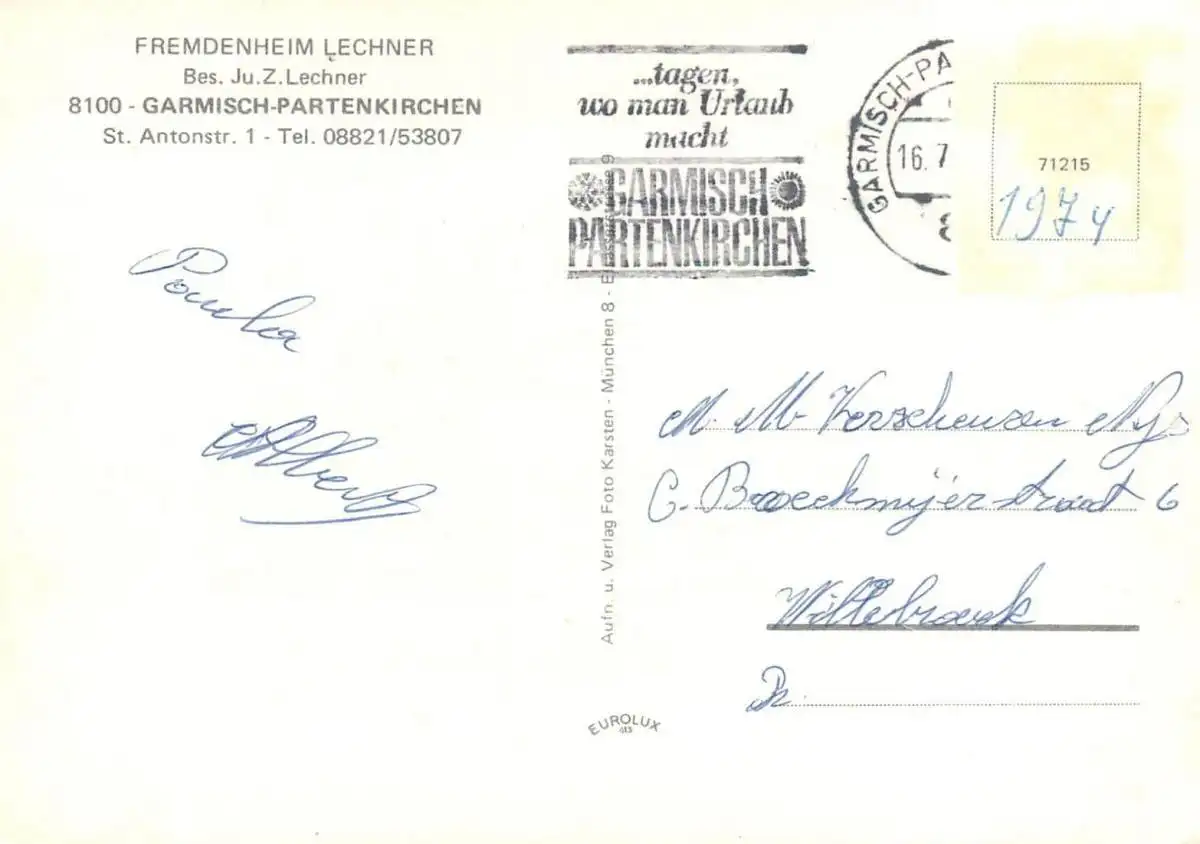 FREMDENHEIM LECHNER
Bes. Ju. Z. Lechner
8100 - GARMISCH-PARTENKIRCHEN
St. Antonstr. 1 - Tel. 08821/53807
...tagen,
wo man Urlaub
macht
GARMISCH
PARTENKIRCHEN
GARMISCH-PA
16. 7
8
71215
1974
Paula
Albert
Aufn. u. Verlag Foto Karsten - München 8 - 9
M. M. Verscheusen
C. Broeckmijerstraat 6
Willebroek
EUROLUX